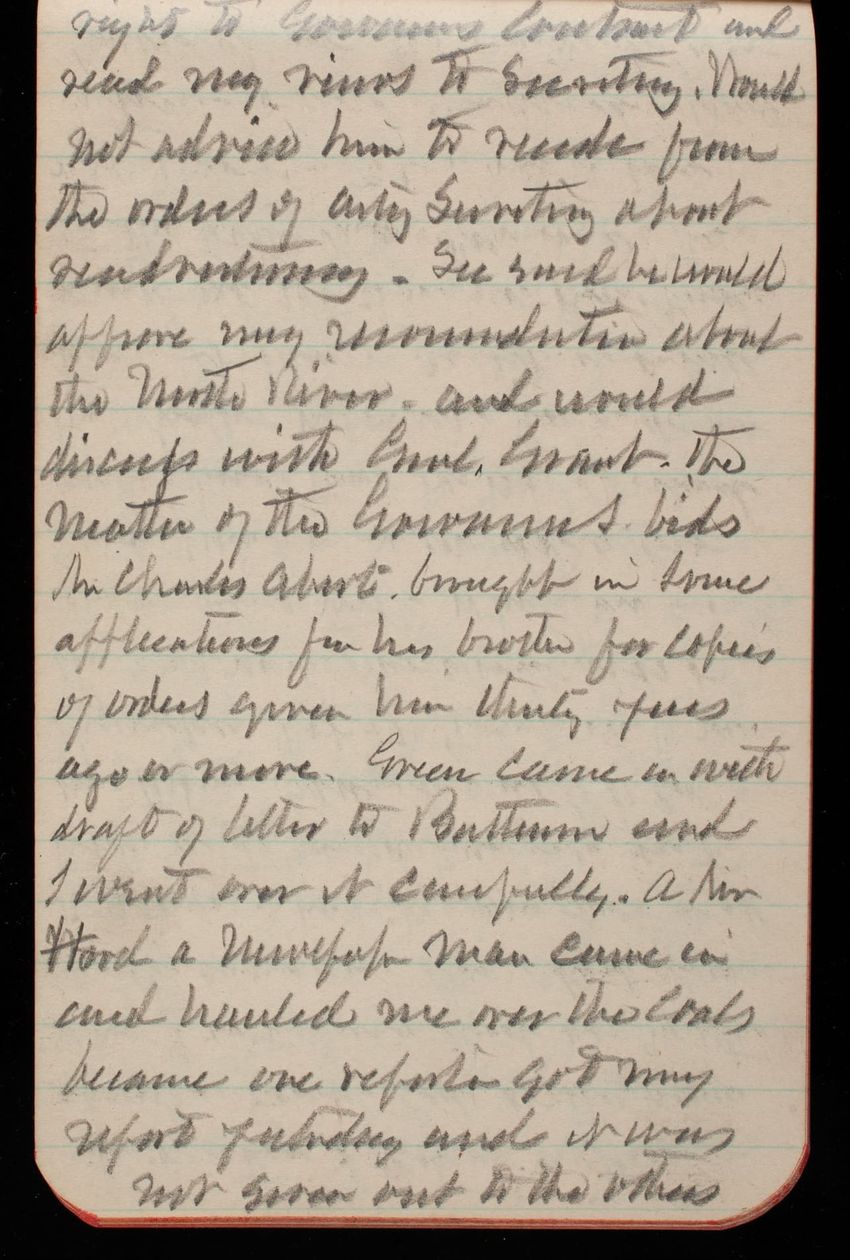 right to Gowanus Contract and
read my views to Secretary. Would
not advise him to recede from
the orders of actg Secretary about
readvertising - Sec said he would
approve my recommendation about
the North River - and would
discuss with Genl. Grant. the
matter of the Gowanus bids
Mr Charles Abert. brought in some
applications for his brother for copies
of orders given him thirty years
ago or more. Green came in with
draft of letter to Butterum and
I went over it carefully. A Mr
Hord a Newspaper man came in
and hauled me over the Coals
because one reporter got my
report yesterday and it was
not given out to the others